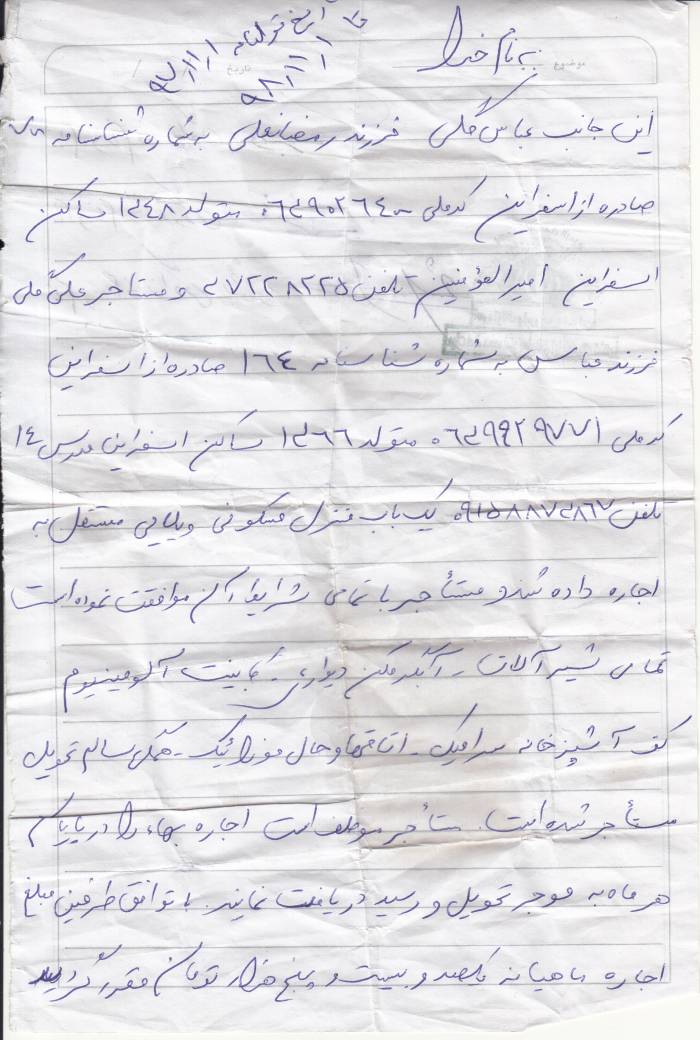 به نام خدا
تاریخ قولنامه
۹۷/۱/۱
۹۸/۱/۱
موضوع
تاریخ
این جانب عباس گلی فرزند رمضانعلی به شماره شناسنامه
صادره از اسفراین کد ملی متولد ۱۳۴۸ ساکن
اسفراین امیرالمؤمنین تلفن ۳۷۲۲۸۲۲۵ و مستاجر گلی
فرزند عباس به شماره شناسنامه ۱۶۴ صادره از اسفراین
کد ملی ۰۶۳۹۹۲۹۷۷۱ متولد ۱۳۶۶ ساکن اسفراین مدرس ۱۴
تلفن ۰۹۱۵۸۸۷۳۸۶۷ یک باب منزل مسکونی ویلایی مستقل به
اجاره داده شد و مستأجر با تمامی شرایط آن موافقت نموده است
تمامی شیرآلات - آبگرمکن دیواری - کابینت آلومینیوم
کف آشپزخانه سرامیک - اتاقها و حال موزائیک - همگی سالم تحویل
مستأجر شده است. مستأجر موظف است اجاره بهاء را در پایان
هر ماه به موجر تحویل و رسید دریافت نمایند. با توافق طرفین مبلغ
اجاره ماهیانه یکصد و بیست و پنج هزار تومان مقرر گردید